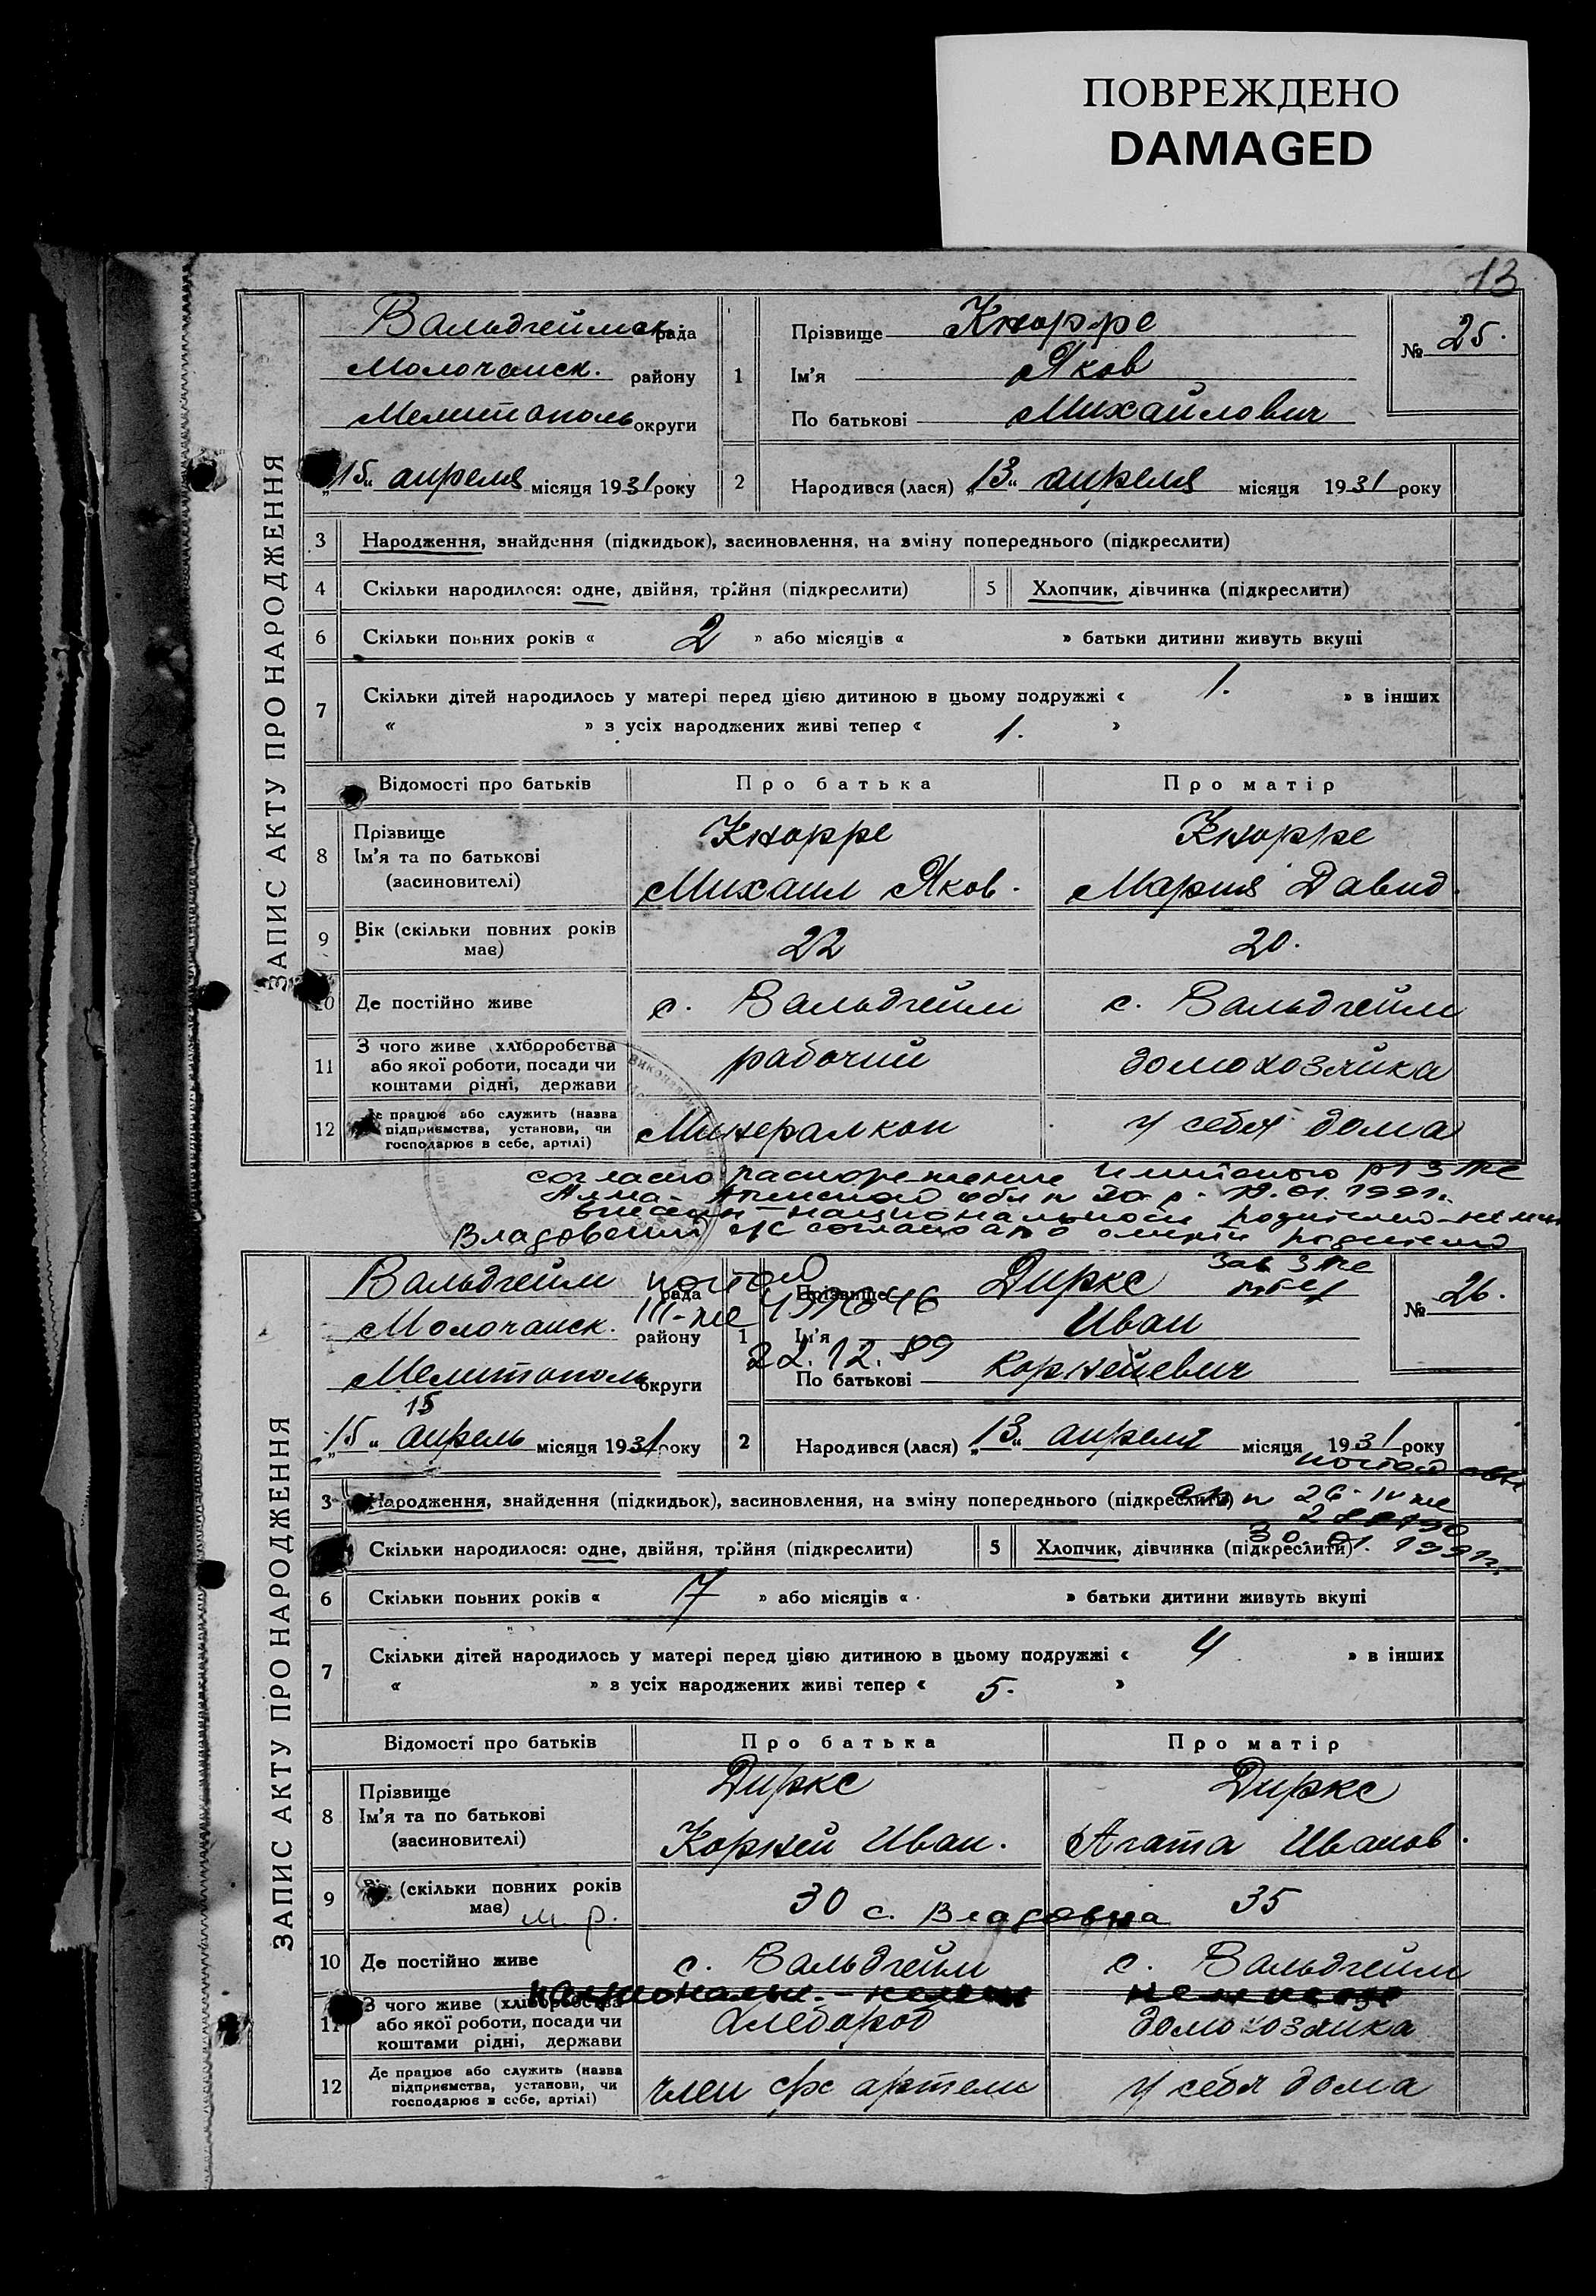 ПОВРЕЖДЕНО
DAMAGED
13
ЗАПИС АКТУ ПРО НАРОДЖЕННЯ
Вальдгеймск. рада
Молочанск. району
Мелитополь округи
„15“ апреля місяця 1931 року
1
Прізвище Кнорре
Ім'я Яков
По батькові Михайлович
№ 25.
2 Народився (лася) „13“ апреля місяця 1931 року
3 Народження, знайдення (підкидьок), засиновлення, на зміну попереднього (підкреслити)
4 Скільки народилося: одне, двійня, трійня (підкреслити) 5 Хлопчик, дівчинка (підкреслити)
6 Скільки повних років « 2 » або місяців « » батьки дитини живуть вкупі
7 Скільки дітей народилось у матері перед цією дитиною в цьому подружжі « 1. » в інших
« » з усіх народжених живі тепер « 1. »
Відомості про батьків Про батька Про матір
8 Прізвище
Ім'я та по батькові
(засиновителі)
Кнорре
Михаил Яков.
Кнорре
Мария Давид.
9 Вік (скільки повних років
має)
22 20.
10 Де постійно живе с. Вальдгейм с. Вальдгейм
11 З чого живе (хліборобства
або якої роботи, посади чи
коштами рідні, держави
рабочий домохозяйка
12 Де працює або служить (назва
підприємства, установи, чи
господарює в себе, артілі)
Минералкоп у себя дома
согласно распоряжение Илийского РЗАГС
Алма-Атинской обл. 19.01.1991г.
внесены национальности родителей
Владовении согласно о родителей
Зав ЗАГС
ЗАПИС АКТУ ПРО НАРОДЖЕННЯ
Вальдгейм рада
Молочанск. району
Мелитополь округи
15
„15“ апрель місяця 1931 року
повтой
III-ЖС 4391046
22.12.89
1
Прізвище Диркс
Ім'я Иван
По батькові Корнеевич
№ 26.
2 Народився (лася) „13“ апреля місяця 1931 року
30.01.1991г.
3 Народження, знайдення (підкидьок), засиновлення, на зміну попереднього (підкреслити)
Скільки народилося: одне, двійня, трійня (підкреслити) 5 Хлопчик, дівчинка (підкреслити)
6 Скільки повних років « 7 » або місяців « » батьки дитини живуть вкупі
7 Скільки дітей народилось у матері перед цією дитиною в цьому подружжі « 4 » в інших
« » з усіх народжених живі тепер « 5. »
Відомості про батьків Про батька Про матір
8 Прізвище
Ім'я та по батькові
(засиновителі)
Диркс
Корней Иван.
Диркс
Агата Иванов.
9 (скільки повних років
має) м. р.
30 с. Владовка 35
10 Де постійно живе с. Вальдгейм с. Вальдгейм
11 З чого живе (хліборобства
або якої роботи, посади чи
коштами рідні, держави
хлебороб домохозяйка
12 Де працює або служить (назва
підприємства, установи, чи
господарює в себе, артілі)
член с/х артели у себя дома